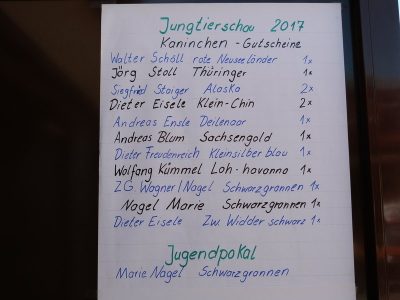 Jungtierschau 2017
Kaninchen - Gutscheine
Walter Schöll rote Neuseeländer 1x
Jörg Stoll Thüringer 1x
Siegfried Staiger Alaska 2x
Dieter Eisele Klein-Chin 2x
Andreas Ensle Deilenaar 1x
Andreas Blum Sachsengold 1x
Dieter Freudenreich Kleinsilber blau 1x
Wolfgang Kümmel Loh-havanna 1x
ZG. Wagner/Nagel Schwarzgrannen 1x
Nagel Marie Schwarzgrannen 1x
Dieter Eisele Zw. Widder schwarz 1x
Jugendpokal
Marie Nagel Schwarzgrannen